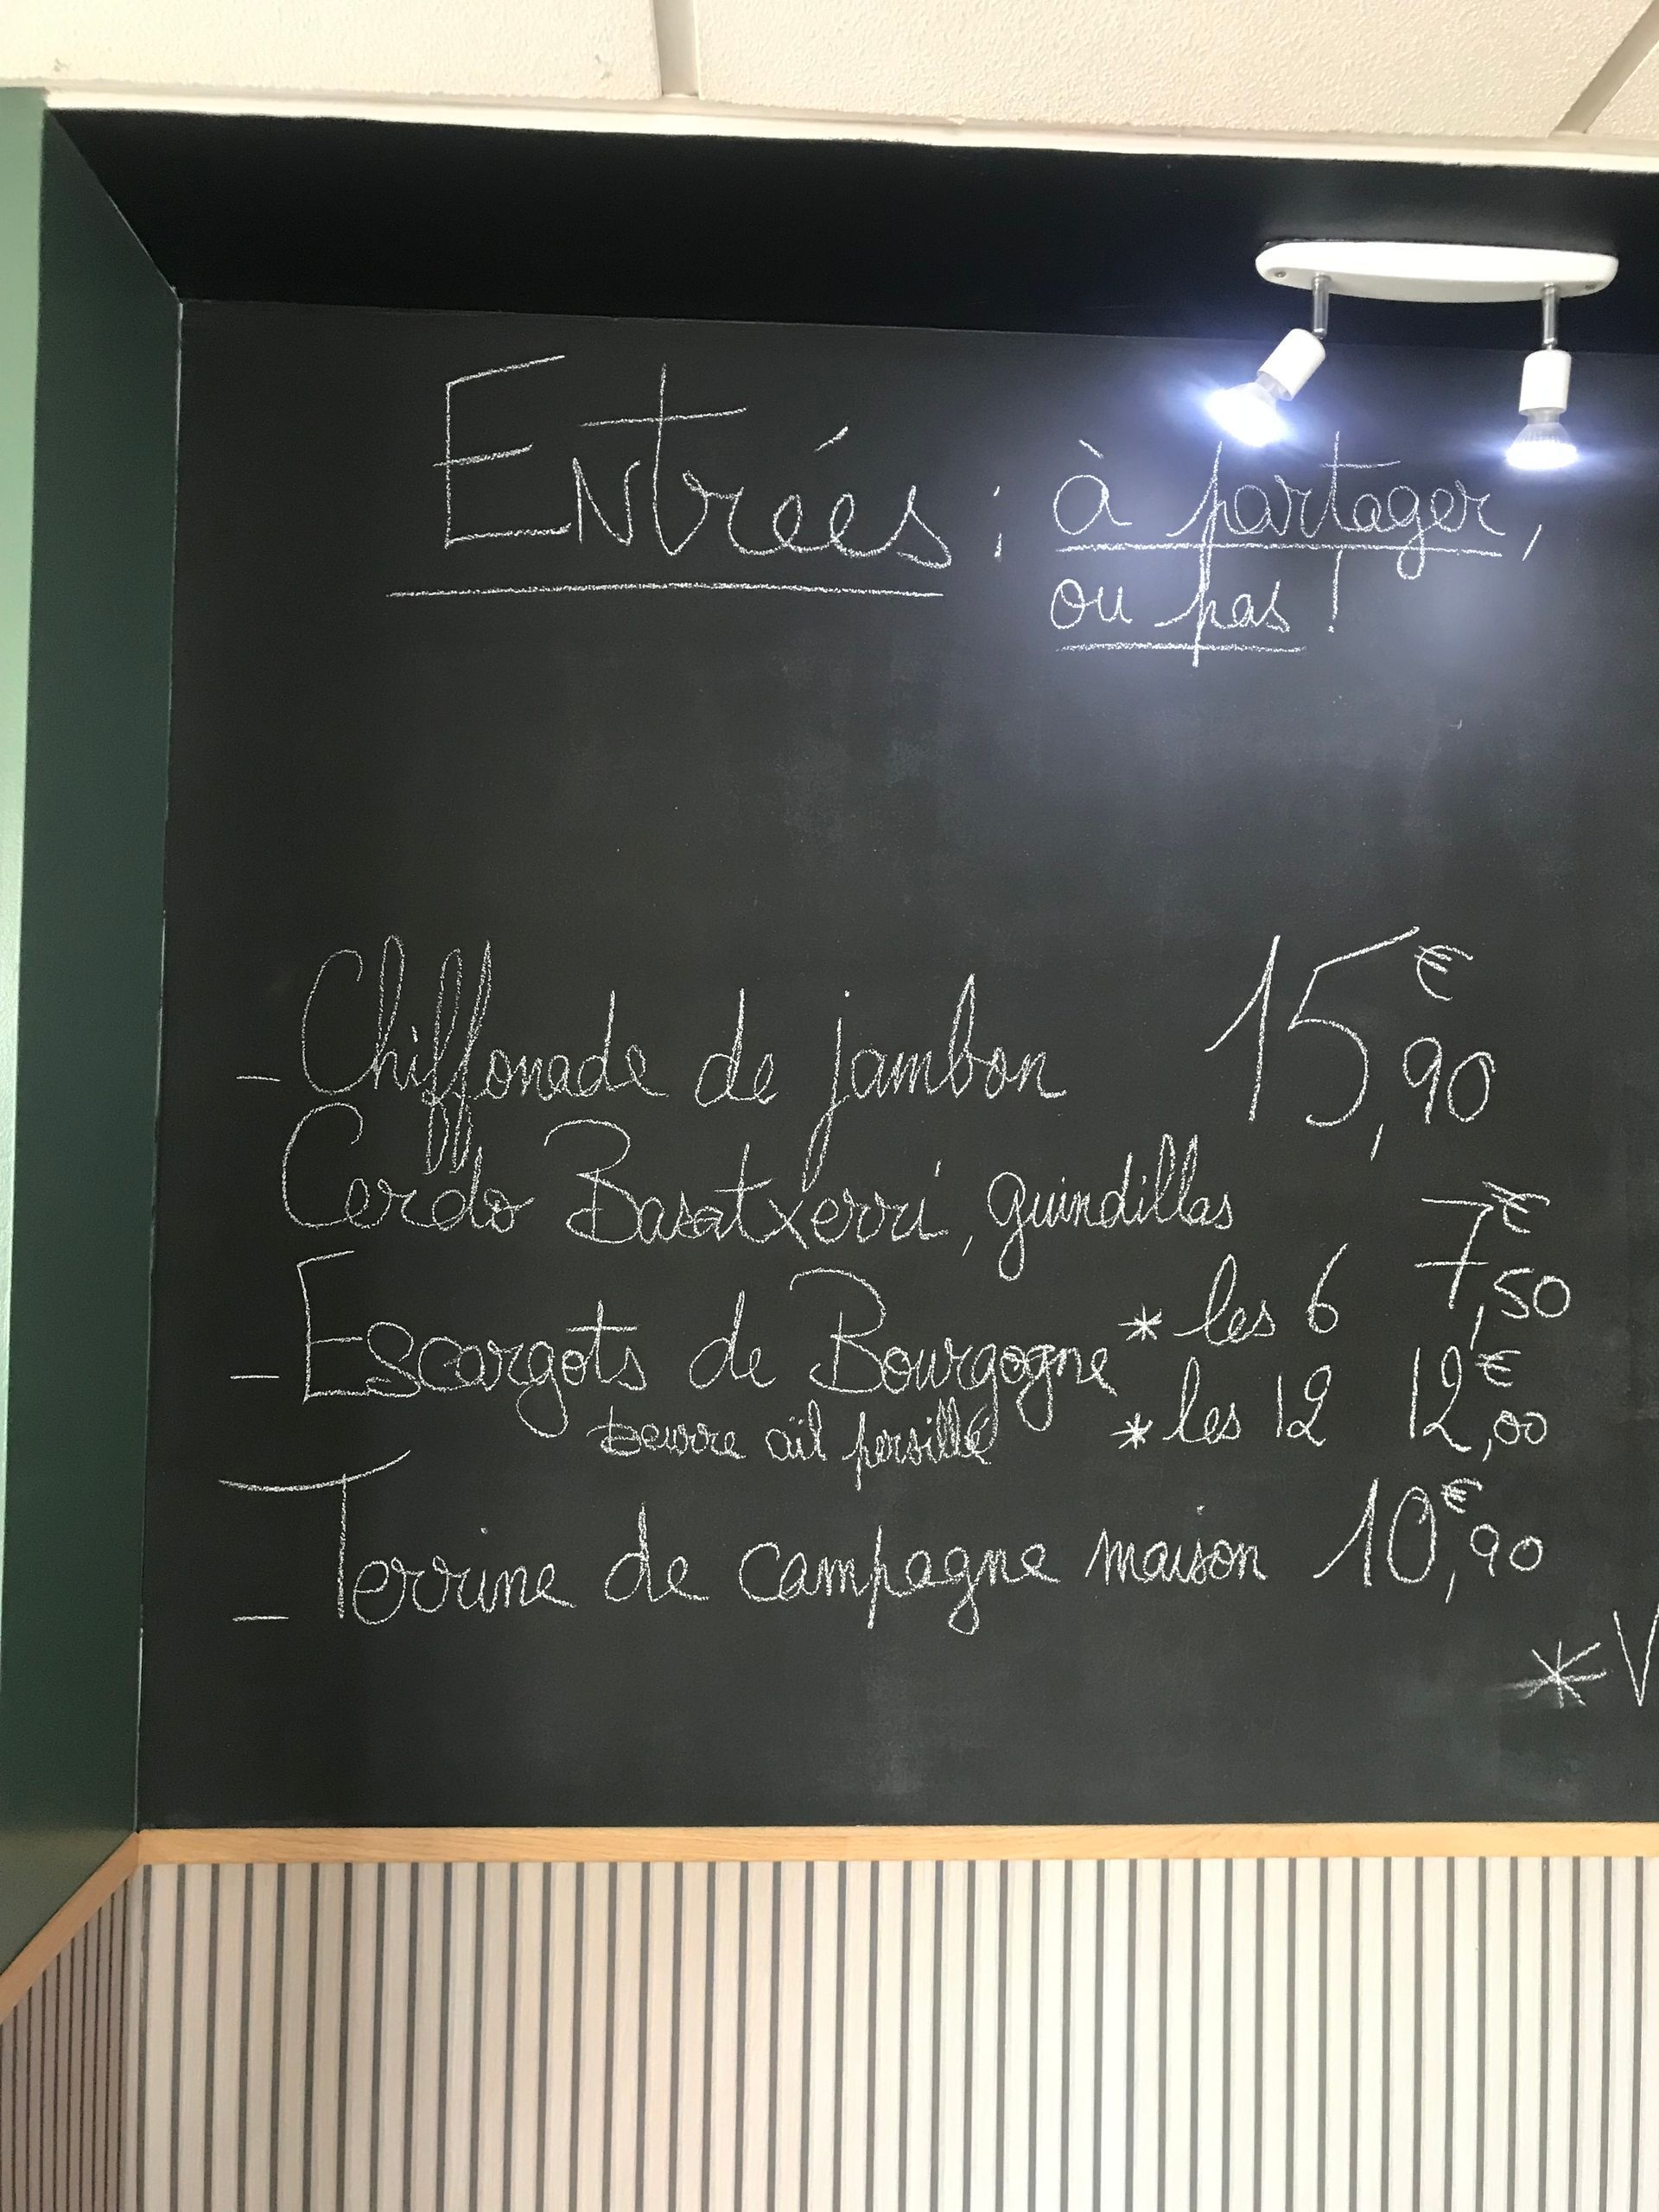 Entrées : à partager,
ou pas !
- Chiffonade de jambon 15,€90
Cerdo Basatxerri, guindillas
- Escargots de Bourgogne * les 6 7,€50
beurre aïl persillé * les 12 12,€00
- Terrine de campagne maison 10,€90
* V